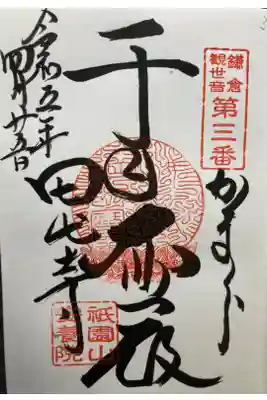 鎌倉
観世音
第三番
かまくら
千手
田代寺
令和五年
四月廿五日
祇園山
安養院